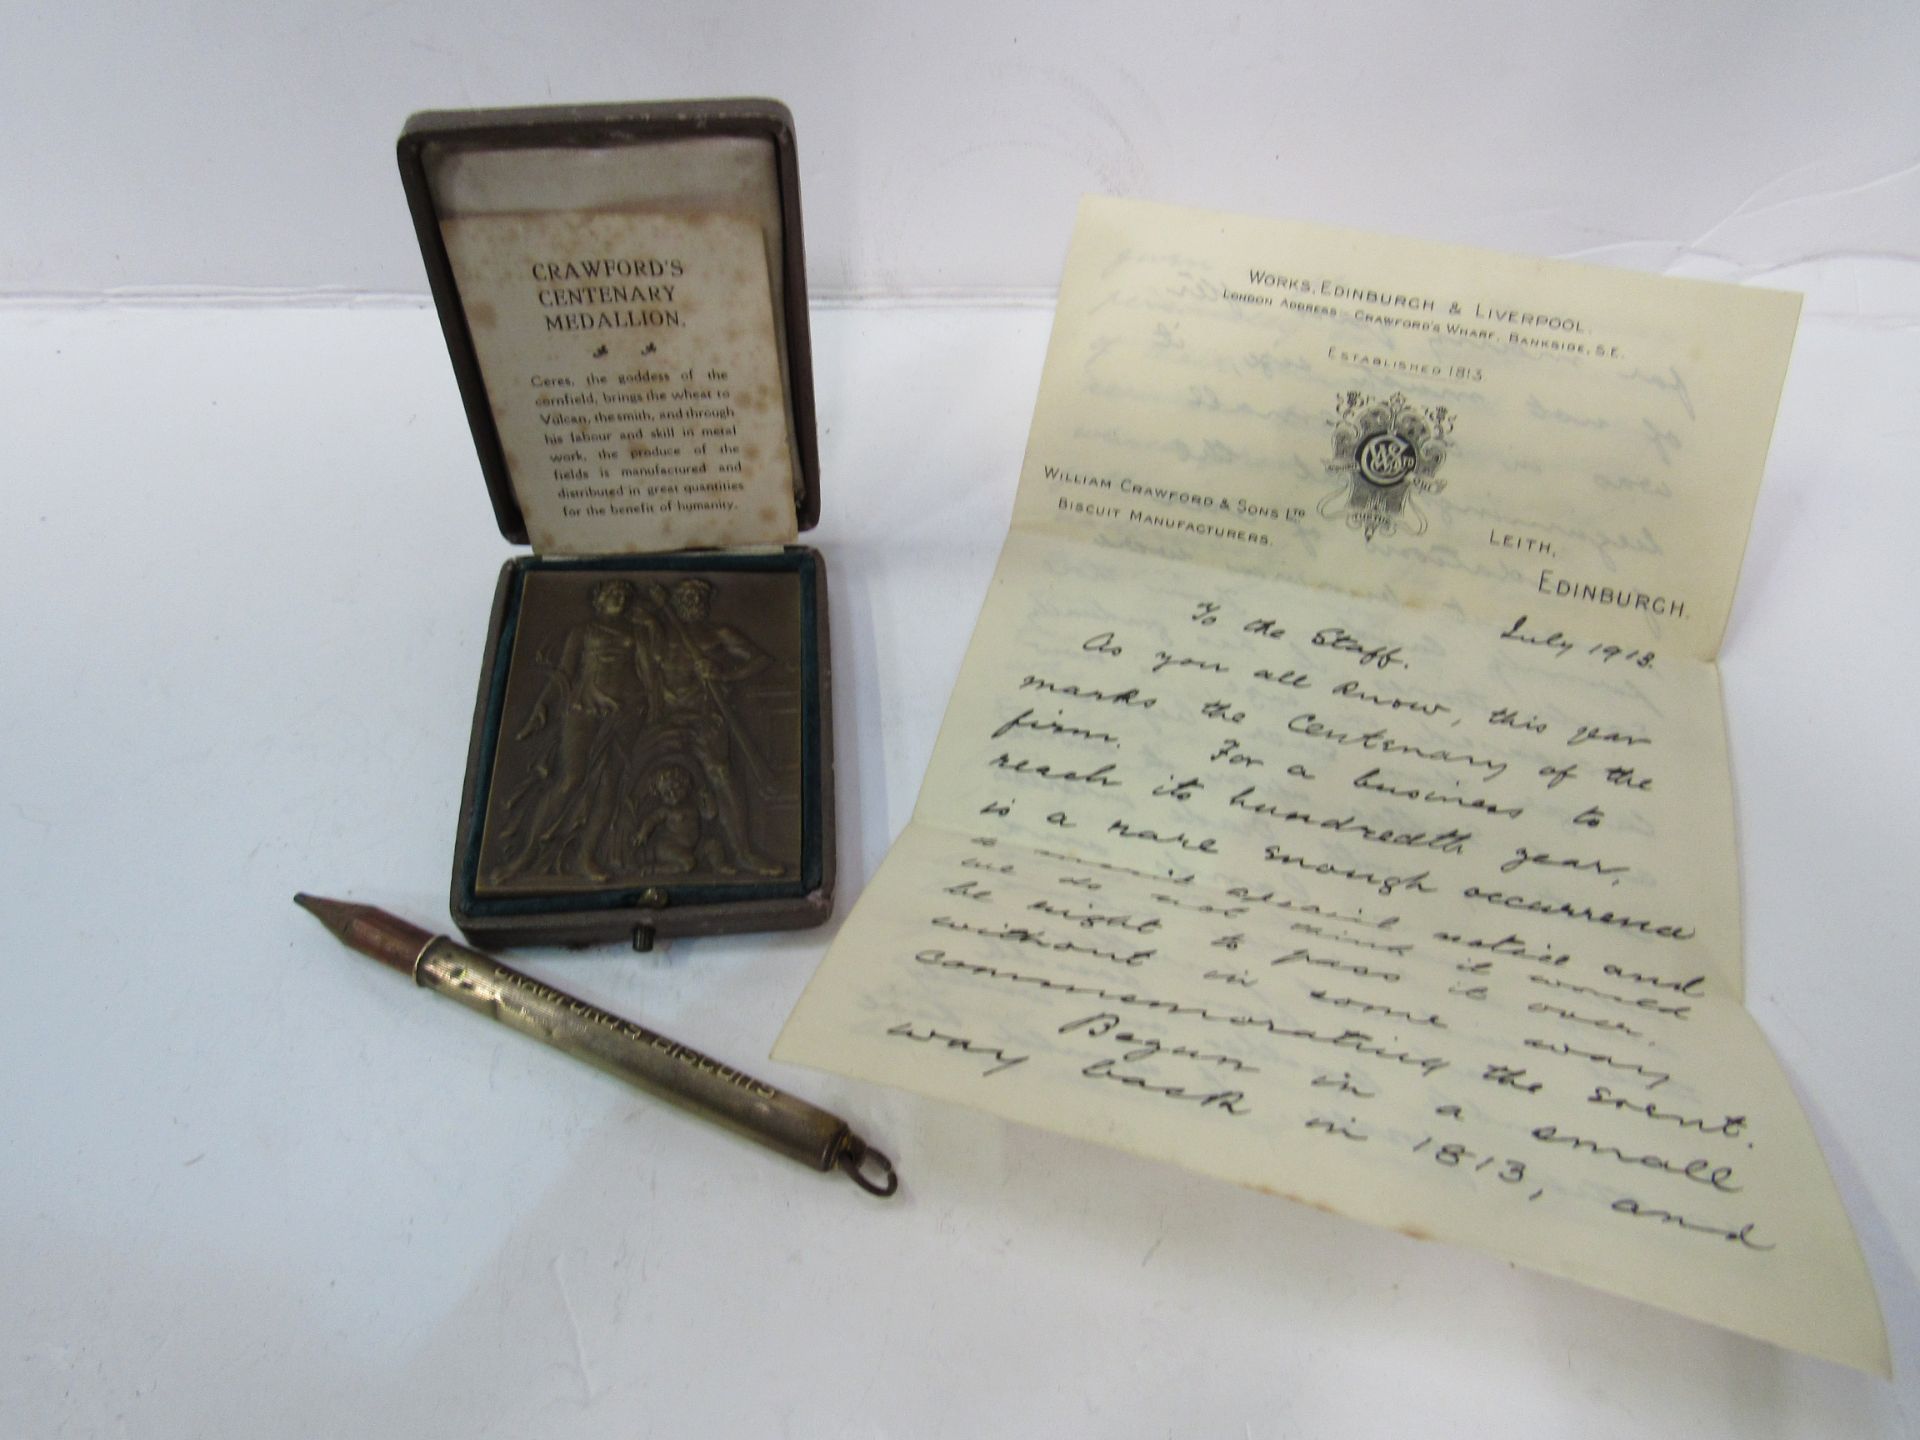 CRAWFORD'S
CENTENARY
MEDALLION.
Ceres, the goddess of the
cornfield, brings the wheat to
Vulcan, the smith, and through
his labour and skill in metal
work, the produce of the
fields is manufactured and
distributed in great quantities
for the benefit of humanity.
CRAWFORD'S BISCUITS
WORKS, EDINBURGH & LIVERPOOL.
LONDON ADDRESS - CRAWFORD'S WHARF, BANKSIDE, S.E.
ESTABLISHED 1813
WILLIAM CRAWFORD & SONS LTD
BISCUIT MANUFACTURERS.
LEITH,
EDINBURGH.
July 1913.
To the Staff.
As you all know, this year
marks the Centenary of the
firm. For a business to
reach its hundredth year,
is a rare enough occurrence
to merit special notice and
we do not think it would
be right to pass it over,
without in some way
commemorating the event.
Begun in a small
way back in 1813, and